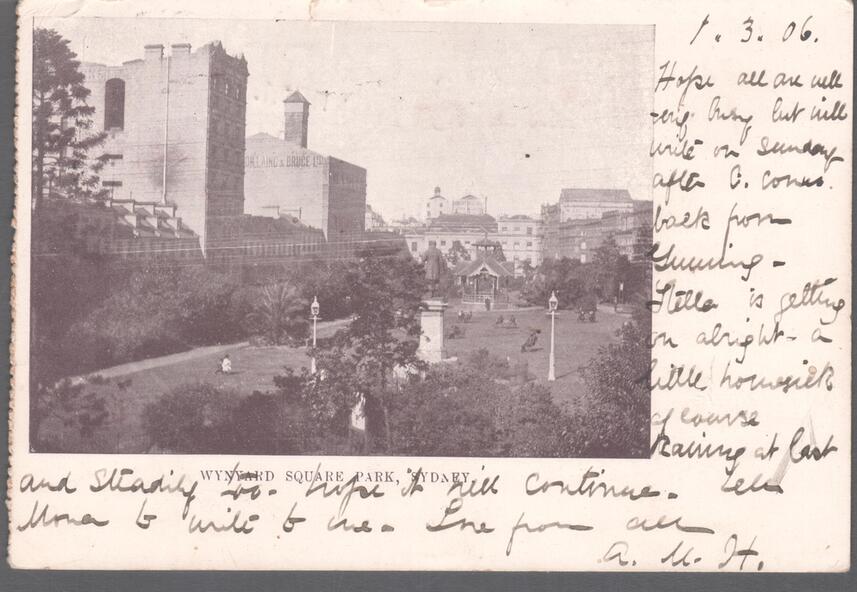 1. 3. 06.
Hope all are well
very busy but will
write on Sunday
after C. comes
back from
Gunning -
Stella is getting
on alright - a
little homesick
of course
Raining at last
and steadily too - hope it will continue. Tell
Mona to write to me - Love from all
A. M. H.
LAING & BRUCE LTD
WYNYARD SQUARE PARK, SYDNEY.